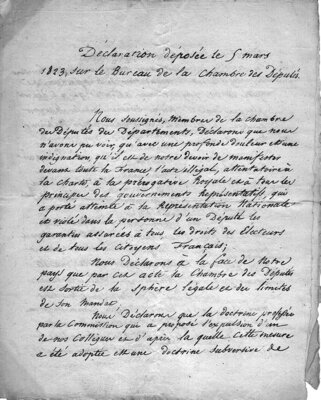 Déclaration déposée le 5 mars
1823, sur le Bureau de la Chambre des Députés.
Nous soussignés, Membres de la chambre
des Députés des Départements, Déclarons que nous
n'avons pu voir qu'avec une profonde douleur et une
indignation qu'il est de notre devoir de manifester
devant toute la France l'acte illégal, attentatoire à
la charte, à la prérogative Royale et à tous les
principes du gouvernement Représentatif, qui
a porté atteinte à la Représentation Nationale
et violé dans la personne d'un Député les
garanties assurées à tous les droits des Electeurs
et de tous les citoyens Français;
Nous Déclarons à la face de notre
pays que par cet acte la Chambre des Députés
est sortie de la Sphère légale et des limites
de son mandat
Nous Déclarons que la doctrine professée
par la Commission qui a proposé l'expulsion d'un
de nos Collègues et d'après la quelle cette mesure
a été adoptée est une doctrine subversive de